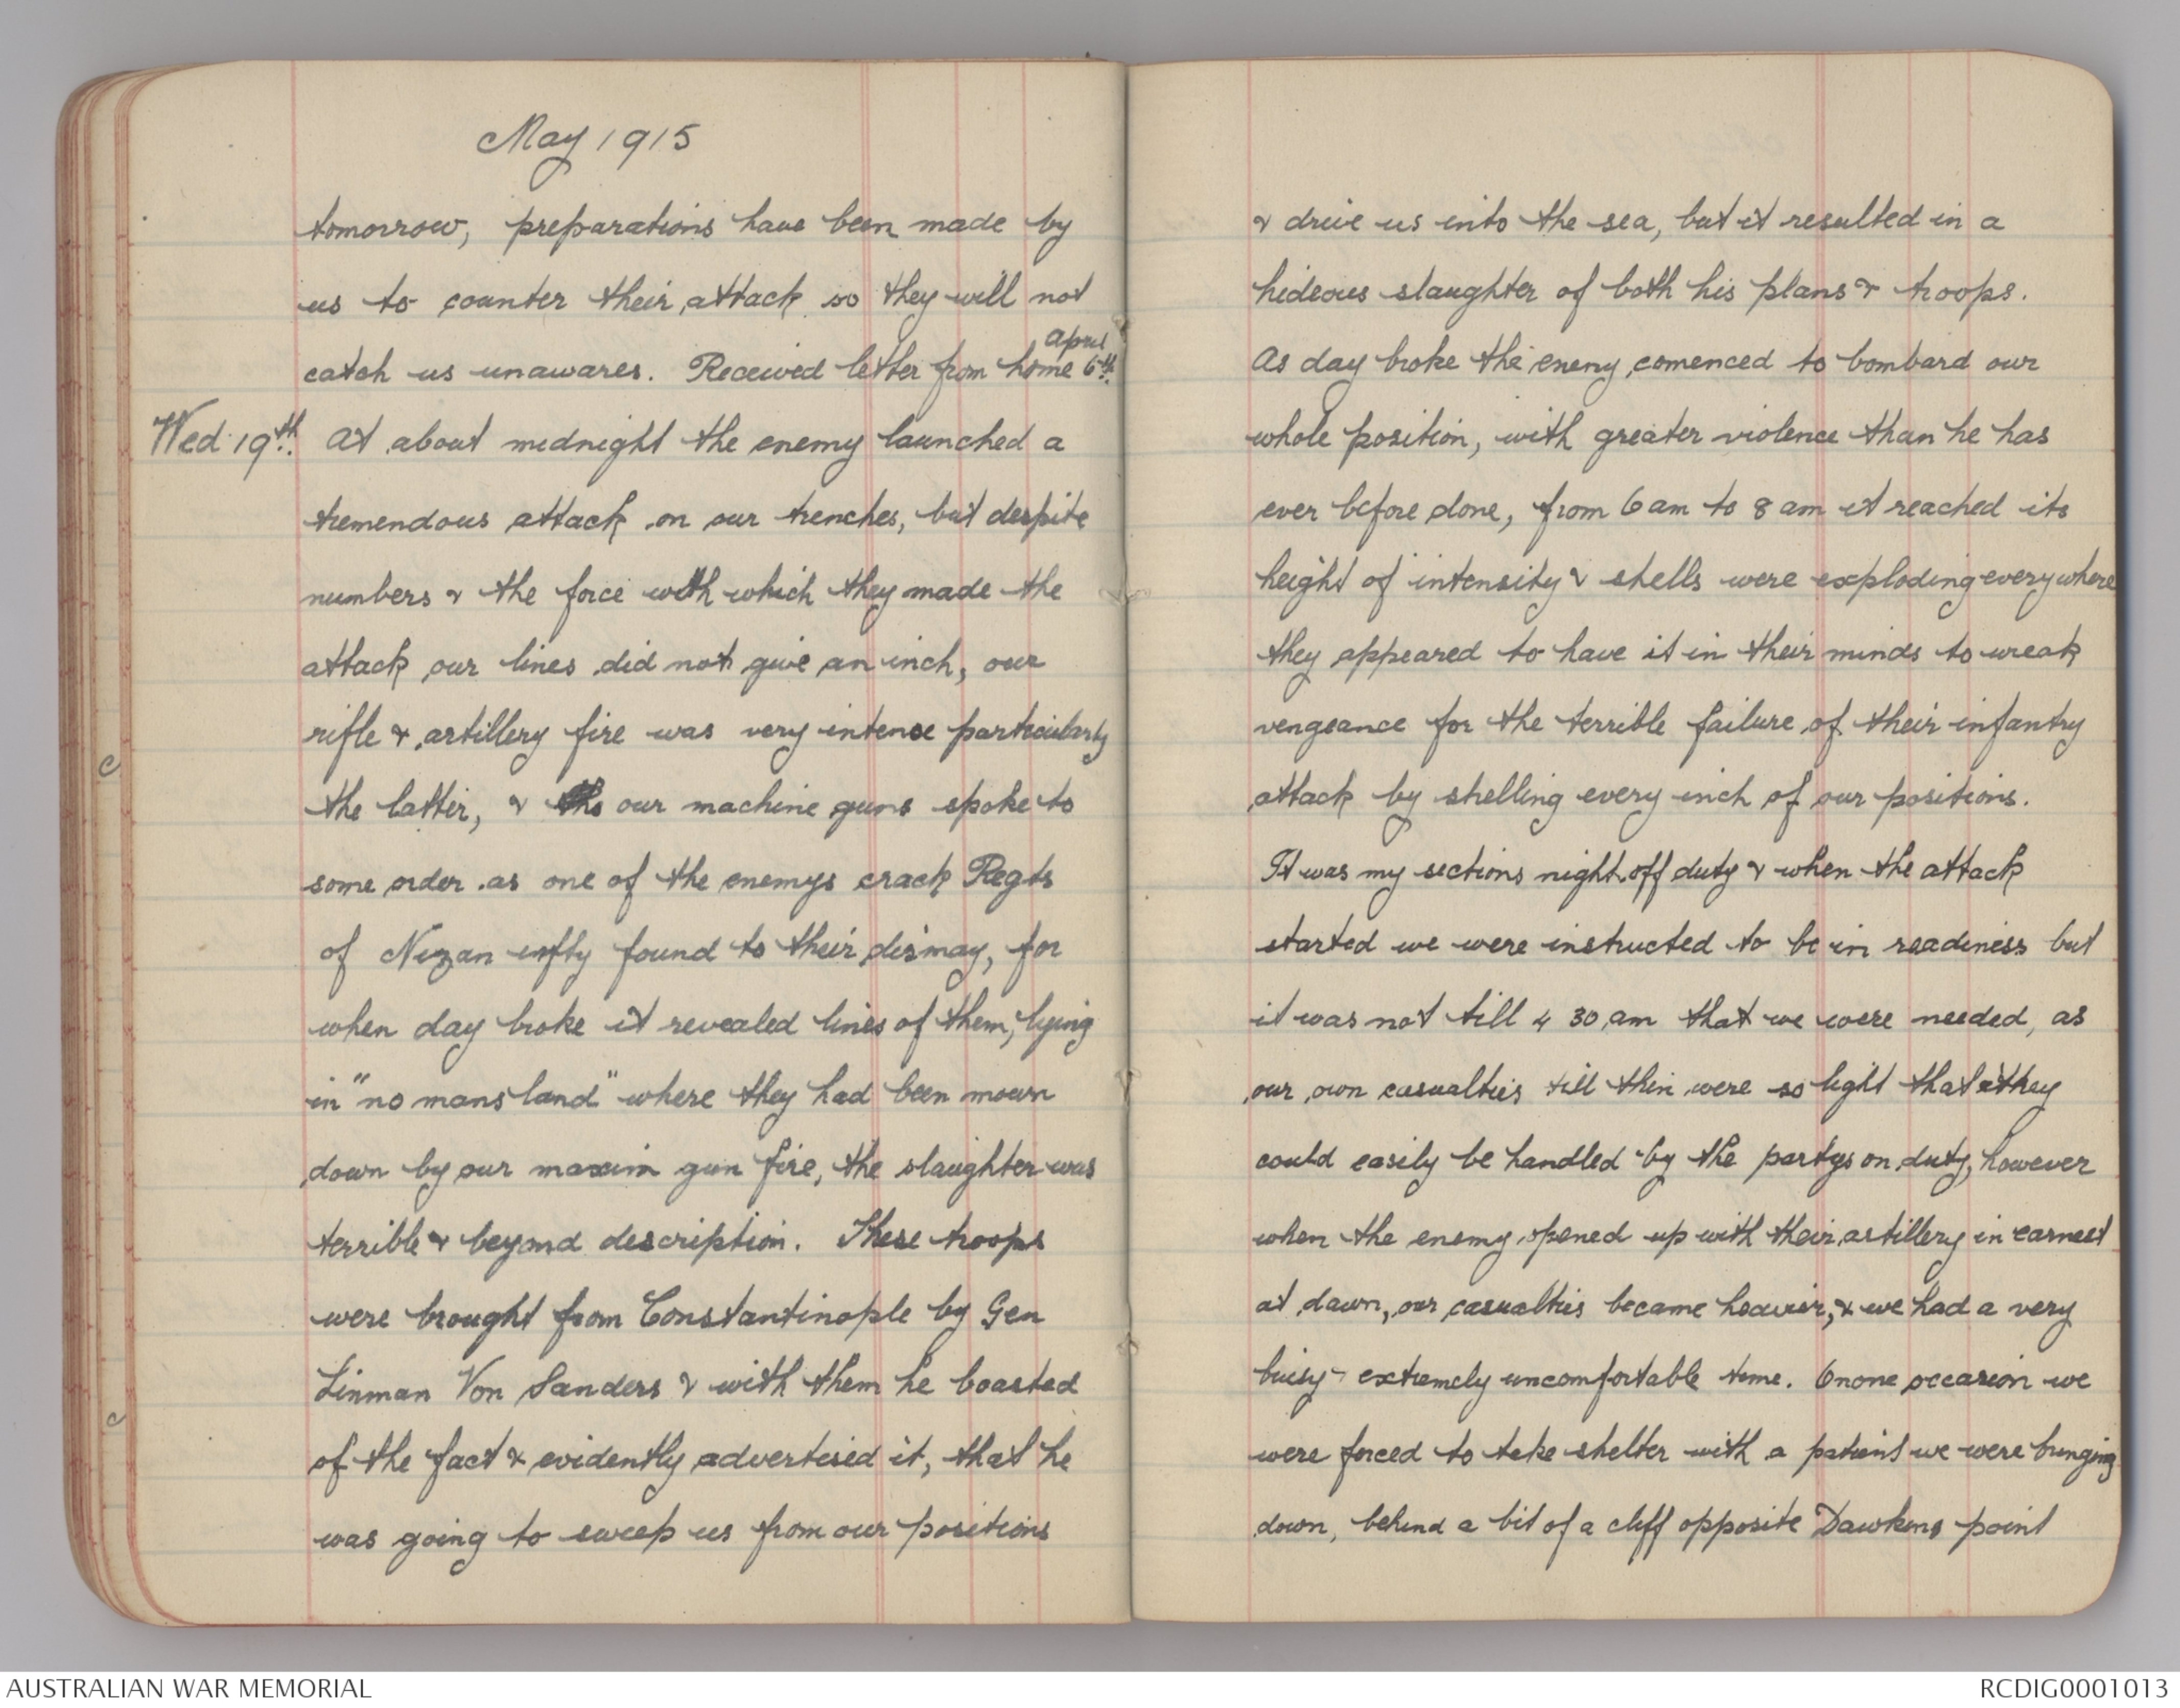 May 1915
tomorrow, preparations have been made by
us to counter their attack so they will not
catch us unawares. Received letter from home April 6th.
Wed 19th. At about midnight the enemy launched a
tremendous attack on our trenches, but despite
numbers & the force with which they made the
attack our lines did not give an inch, our
rifle & artillery fire was very intense particularly
the latter, & our machine guns spoke to
some order as one of the enemys crack Regts
of Nizan infty found to their dismay, for
when day broke it revealed lines of them, lying
in "no mans land" where they had been mown
down by our maxim gun fire, the slaughter was
terrible & beyond description. These troops
were brought from Constantinople by Gen
Linman Von Sanders & with them he boasted
of the fact & evidently advertised it, that he
was going to sweep us from our positions
& drive us into the sea, but it resulted in a
hideous slaughter of both his plans & troops.
As day broke the enemy comenced to bombard our
whole position, with greater violence than he has
ever before done, from 6 am to 8 am it reached its
height of intensity & shells were exploding everywhere
they appeared to have it in their minds to wreak
vengeance for the terrible failure of their infantry
attack by shelling every inch of our positions.
It was my sections night off duty & when the attack
started we were instructed to be in readiness but
it was not till 4 30 am that we were needed, as
our own casualties till then were so light that they
could easily be handled by the partys on duty, however
when the enemy opened up with their artillery in earnest
at dawn, our casualties became heavier, & we had a very
busy & extremely uncomfortable time. On one occasion we
were forced to take shelter with a patient we were bringing
down, behind a bit of a cliff opposite Dawkins point
AUSTRALIAN WAR MEMORIAL
RCDIG0001013